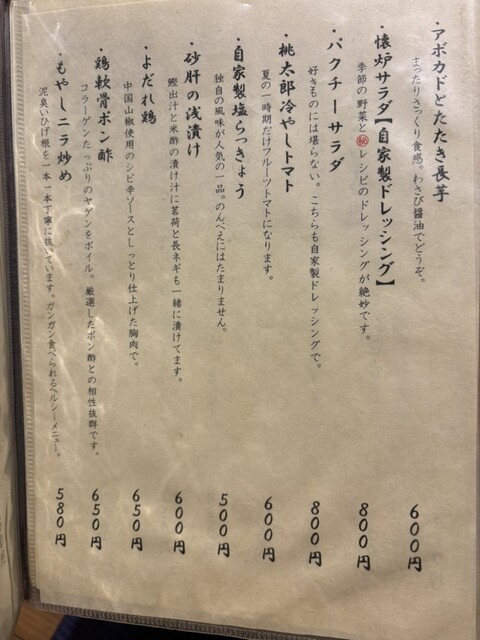 ・アボカドとたたき長芋
まったりさっくり食感。わさび醤油でどうぞ。
600円
・懐炉サラダ【自家製ドレッシング】
季節の野菜と㊙レシピのドレッシングが絶妙です。
800円
・パクチーサラダ
好きものには堪らない。こちらも自家製ドレッシングで。
800円
・桃太郎冷やしトマト
夏の一時期だけフルーツトマトになります。
600円
・自家製塩らっきょう
独自の風味が人気の一品。のんべえにはたまりません。
500円
・砂肝の浅漬け
鰹出汁と米酢の漬け汁に茗荷と長ネギも一緒に漬けてます。
600円
・よだれ鶏
中国山椒使用のシビ辛ソースとしっとり仕上げた胸肉で。
650円
・鶏軟骨ポン酢
コラーゲンたっぷりのヤゲンをボイル。厳選したポン酢との相性抜群です。
650円
・もやしニラ炒め
泥臭いひげ根を一本一本丁寧に抜いています。ガンガン食べられるヘルシーメニュー。
580円